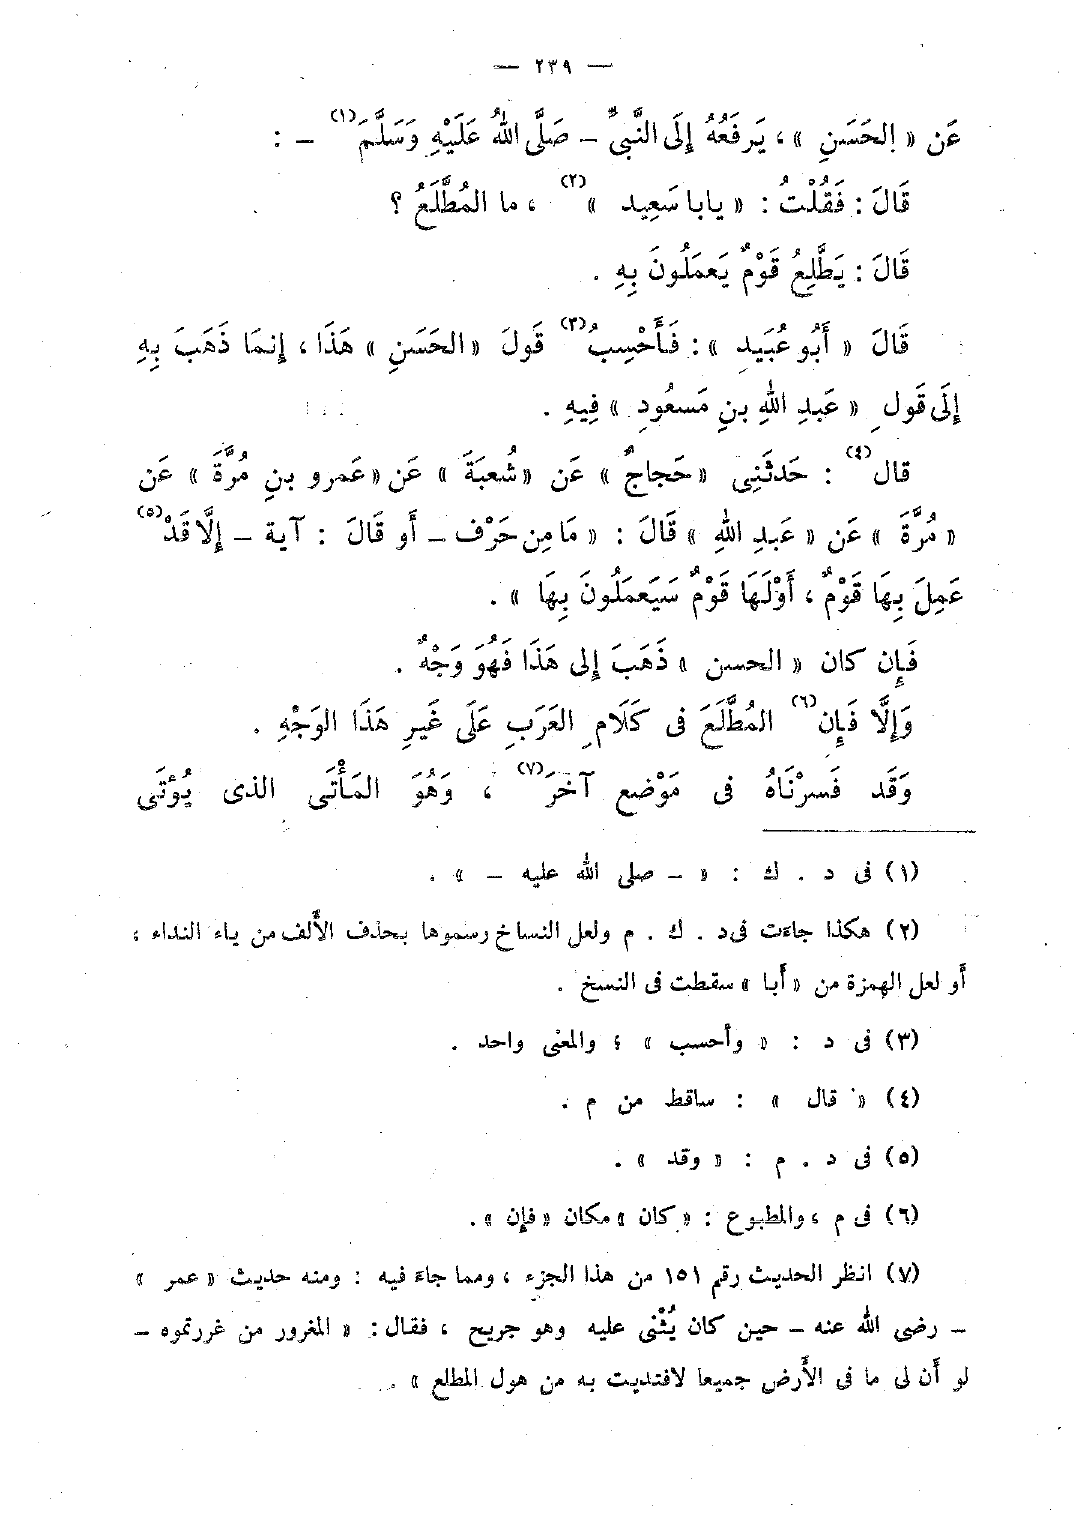 — ٢٣٩ —
عَن « الحَسَنِ » ، يَرفَعُهُ إِلَى النَّبىِّ – صَلَّى اللهُ عَلَيْهِ وَسَلَّمَ(١) – :
قَالَ : فَقُلْتُ : « يابا سَعِيد »(٢) ، ما المُطَّلَعُ ؟
قَالَ : يَطَّلِعُ قَوْمٌ يَعمَلُونَ بِهِ .
قَالَ « أَبُو عُبَيد » : فَأَحْسِبُ(٣) قَولَ « الحَسَنِ » هَذَا ، إِنمَا ذَهَبَ بِهِ
إِلَى قَولِ « عَبدِ اللهِ بنِ مَسعُودِ » فِيهِ .
قال(٤) : حَدثَنِى « حَجاجٌ » عَن « شُعبَةَ » عَن « عَمرو بنِ مُرَّةَ » عَن
« مُرَّةَ » عَن « عَبدِ اللهِ » قَالَ : « مَا مِن حَرْف – أَو قَالَ : آية – إِلَّا قَدْ(٥)
عَمِلَ بِهَا قَوْمٌ ، أَوْلَهَا قَوْمٌ سَيَعمَلُونَ بِهَا » .
فَإِن كان « الحسن » ذَهَبَ إِلى هَذَا فَهُوَ وَجْهٌ .
وَإِلَّا فَإِن(٦) المُطَّلَعَ فى كَلَامِ العَرَبِ عَلَى غَيرِ هَذَا الوَجْهِ .
وَقَد فَسرْنَاهُ فى مَوْضع آخَرَ(٧) ، وَهُوَ المَأْتَى الذى يُؤتَى
(١) فى د . ك : « – صلى الله عليه – » .
(٢) هكذا جاءت فى د . ك . م ولعل النساخ رسموها بحذف الأَلف من ياء النداء ،
أَو لعل الهمزة من « أَبا » سقطت فى النسخ .
(٣) فى د : « وأحسب » ؛ والمعنى واحد .
(٤) « قال » : ساقط من م .
(٥) فى د . م : « وقد » .
(٦) فى م ، والمطبوع : « كان » مكان « فإن » .
(٧) انظر الحديث رقم ١٥١ من هذا الجزء ، ومما جاءَ فيه : ومنه حديث « عمر »
– رضى الله عنه – حين كان يُثْنى عليه وهو جريح ، فقال : « المغرور من غررتموه –
لو أَن لى ما فى الأَرض جميعا لافتديت به من هول المطلع » .